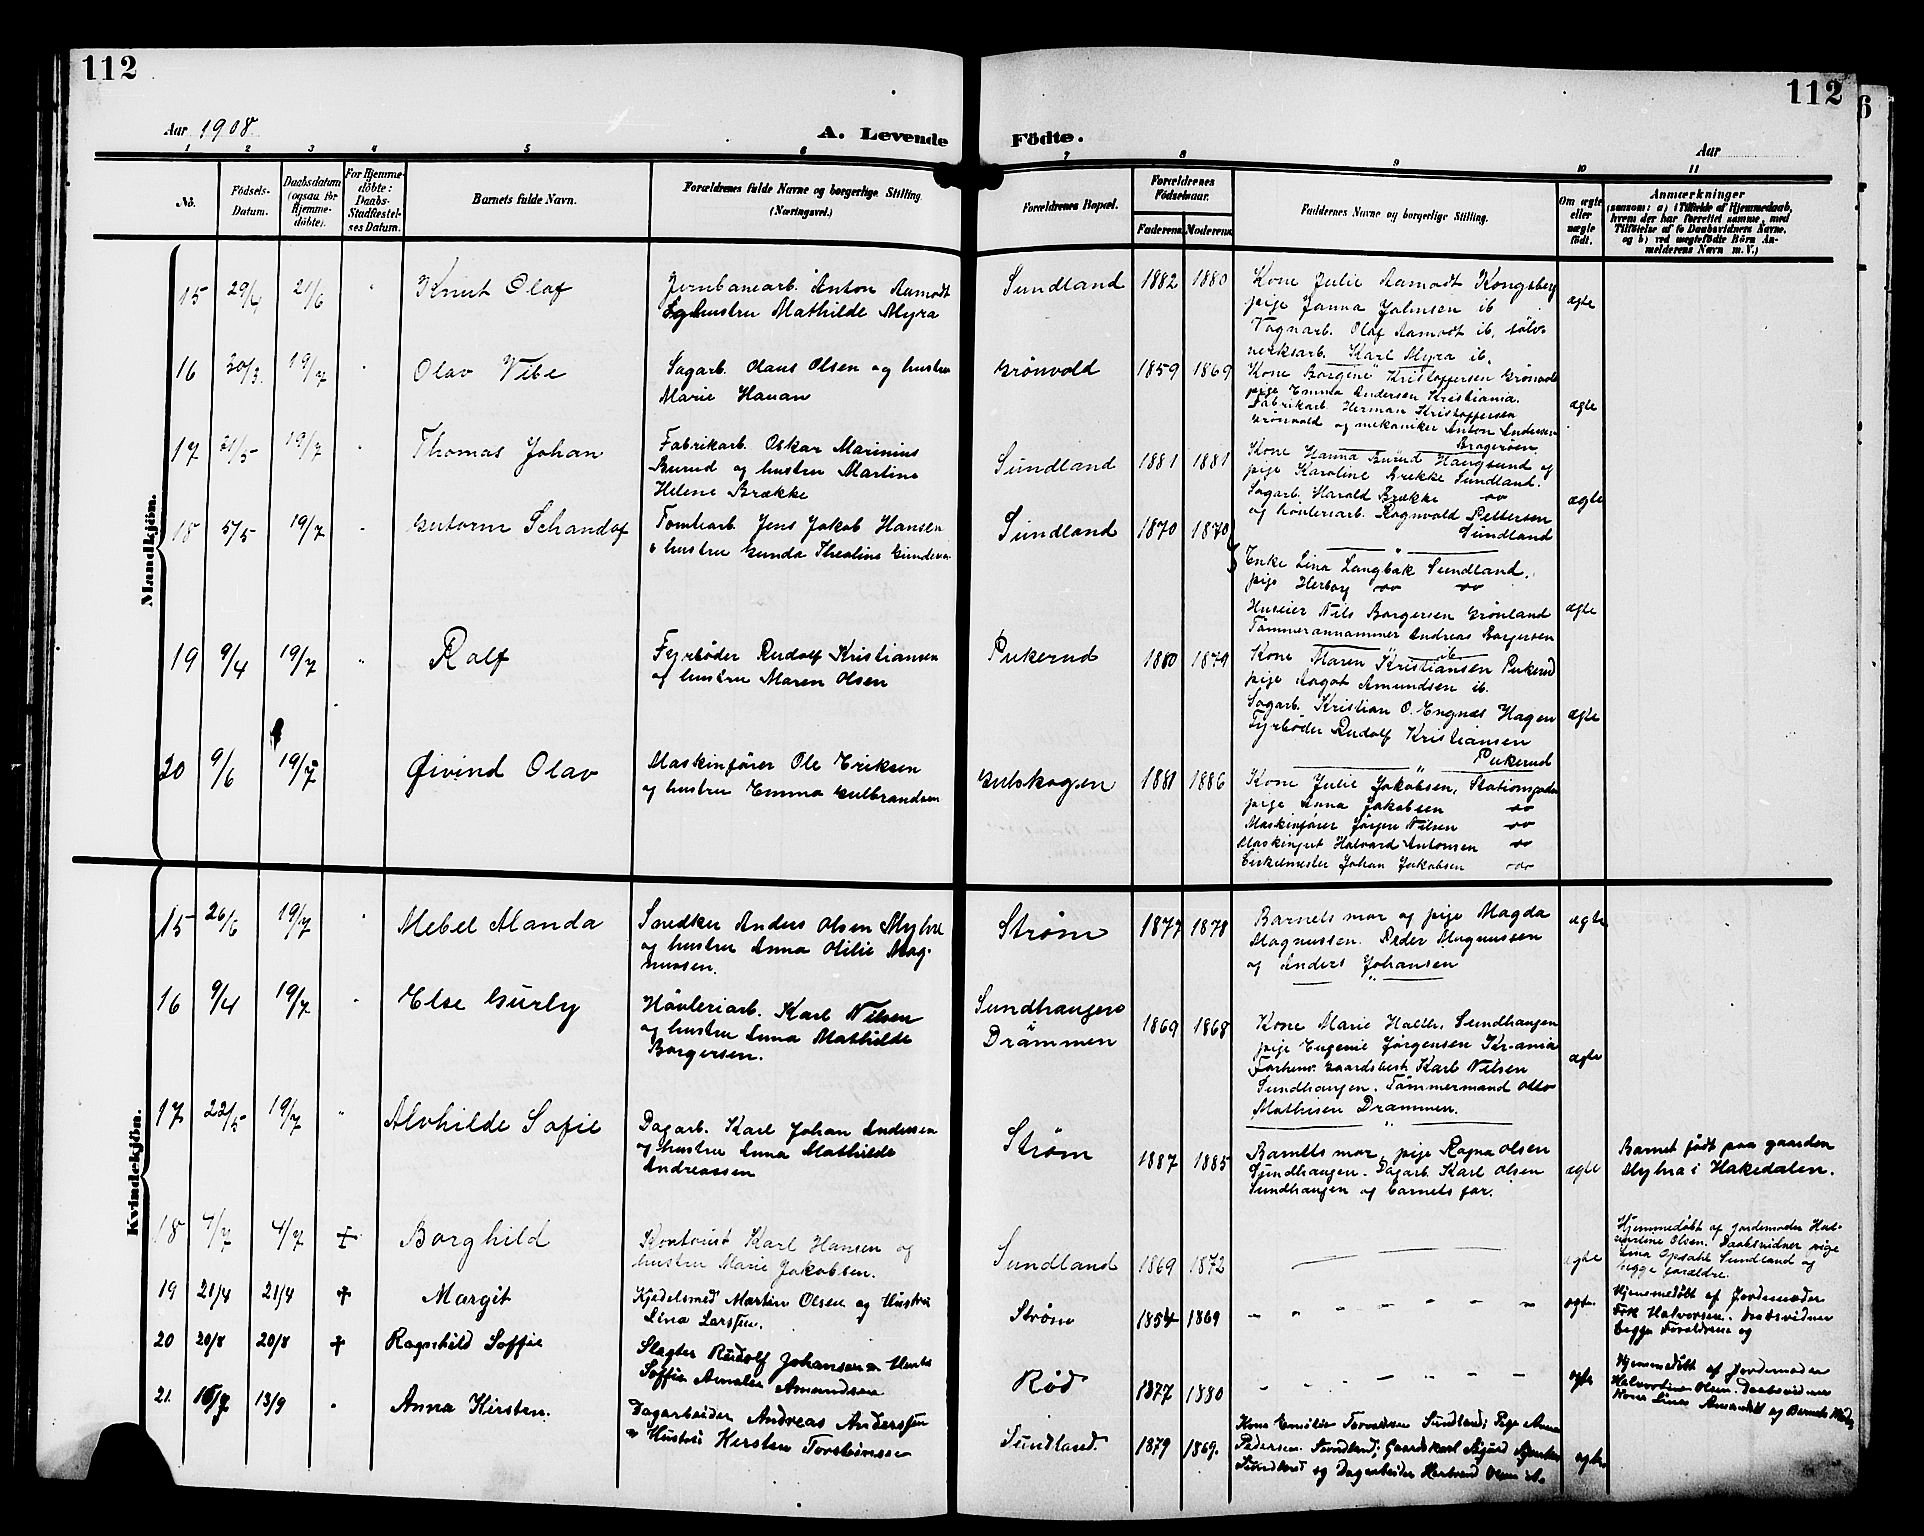 112
112
Aar 1908.
A. Levende Födte.
Aar
1 2 3 4 5 6 7 8 9 10 11
No.
Födsels-Datum.
Daabsdatum (ogsaa for Hjemme-döbte).
For Hjemme-döbte: Daabs-Stadfæstel-ses Datum.
Barnets fulde Navn.
Forældrenes fulde Navne og borgerlige Stilling. (Næringsvei.)
Forældrenes Bopæl.
Forældrenes Födselsaar.
Faderens Moderens
Faddernes Navne og borgerlige Stilling.
Om ægte eller uægte födt.
Anmærkninger
(saasom: a) i Tilfælde af Hjemmedaab,
hvem der har forrettet samme, med
Tilföielse af to Daabsvidners Navne,
og b) ved uægtefödte Börn An-
melderens Navn m. V.)
Mandkjön.
15 29/4 21/6 Knut Olaf
Jernbanearb. Anton Aamodt
hustru Mathilde Myra
Sundland 1882 1880
Kone Julie Aamodt Kongsberg
pige Janna Johnsen ib
Vognarb. Olaf Aamodt ib. sölv-
verksarb. Karl Myra ib.
ægte
16 20/3 19/7 Olav Vibe
Sagarb. Olaus Olsen og hustru
Marie Hauan
Grönvold 1859 1869
Kone Borgine Kristoffersen Grönvold
pige Emma Andersen Kristiania.
Fabrikarb. Herman Kristoffersen
Grönvold og mekaniker Anton Andersen
Bragerøen
ægte
17 21/5 19/7 Thomas Johan
Fabrikarb. Oskar Marinius
Burud og hustru Martine
Helene Brække
Sundland 1881 1881
Kone Hanna Burud Haugsund og
pige Karoline Brekke Sundland.
Sagarb. Harald Brække
og høvleriarb. Ragnvald Pettersen
Sundland
ægte
18 5/5 19/7 Gutorm Schandof
Tomtearb. Jens Jakob Hansen
o hustru Gunda Thealine
Sundland 1870 1870
Enke Lina Langbak Sundland.
pige Herborg
Huseier Nils Borgersen Grönland
Tømmerannammer Andreas Borgersen
ib.
ægte
19 9/4 19/7 Ralf
Fyrbøder Rudolf Kristiansen
og hustru Maren Olsen
Pukerud 1880 1879
Kone Maren Kristiansen Pukerud
pige Aagot Amundsen ib.
Sagarb. Kristian O. Engnæs Hagen
Fyrbøder Rudolf Kristiansen
Pukerud
ægte
20 9/6 19/7 Øivind Olav
Maskinfører Ole Eriksen
og hustru Emma Gulbrandsen
Gulskogen 1881 1886
Kone Julie Jakobsen,
pige Anna Jakobsen
Maskinfører Jørgen Nilsen
Halvard Antonsen
Cirkelmester Johan Jakobsen
Kvindekjön.
15 26/6 19/7 Mebel Alanda
Snedker Anders Olsen Myhre
og hustru Anna Otilie Mag-
nussen.
Strøm 1877 1878
Barnets mor og pige Magda
Magnussen. Peder Magnussen
og Anders Johansen
ægte
16 9/4 19/7 Else Gurly
Høvleriarb. Karl Nilsen
og hustru Anna Mathilde
Borgersen.
Sundhaugen
i
Drammen 1869 1868
Kone Marie Halle, Sundhaugen
pige Eugenie Jørgensen Kr-ania
Forhenv. gaardsbest. Karl Nilsen
Sundhaugen. Tömmermand Otto
Mathisen Drammen.
ægte
17 22/5 19/7 Alvhilde Sofie
Dagarb. Karl Johan Andersen
og hustru Anna Mathilde
Andreassen
Strøm 1887 1885
Barnets mor, pige Ragna Olsen
Sundhaugen. Dagarb. Karl Olsen
Sundhaugen og barnets far.
ægte
Barnet født paa gaarden
Myhra i Hakedalen.
18 4/7 4/7 + Borghild
Kontorist Karl Hansen og
hustru Marie Jakobsen.
Sundland 1869 1872
ægte
Hjemmedøbt af jordemoder Hal-
vorline Olsen. Daabsvidner pige
Lina Opdahl Sundland og
begge forældre.
19 21/4 21/4 + Margit
Kjedelsmed Martin Olsen og Hustru
Lina Larssen.
Strøm 1854 1869
ægte
Hjemmedøbt af Jordemoder
Frk Halvorsen. Daabsvidner
begge Forældrene og
20 20/8 20/8 + Ragnhild Soffie
Slagter Rudolf Johansen o Hustr
Soffie Amalie Amundsen
Rød 1877 1880
ægte
Hjemmedøbt af Jordemoder
Halvorline Olsen. Daabsvidner
Kone Lina Amundsen og Barnets Moder
21. 16/7 13/9 Anna Kirsten.
Dagarbeider Andreas Anderssen
o Hustru Kirsten Torstensen
Sundland. 1879 1869.
Kone Emilie Sundland; Pige Anna
Pedersen Sundland; Gaardskarl Sigurd
Sundland og Dagarbeider Olsen ib.
ægte